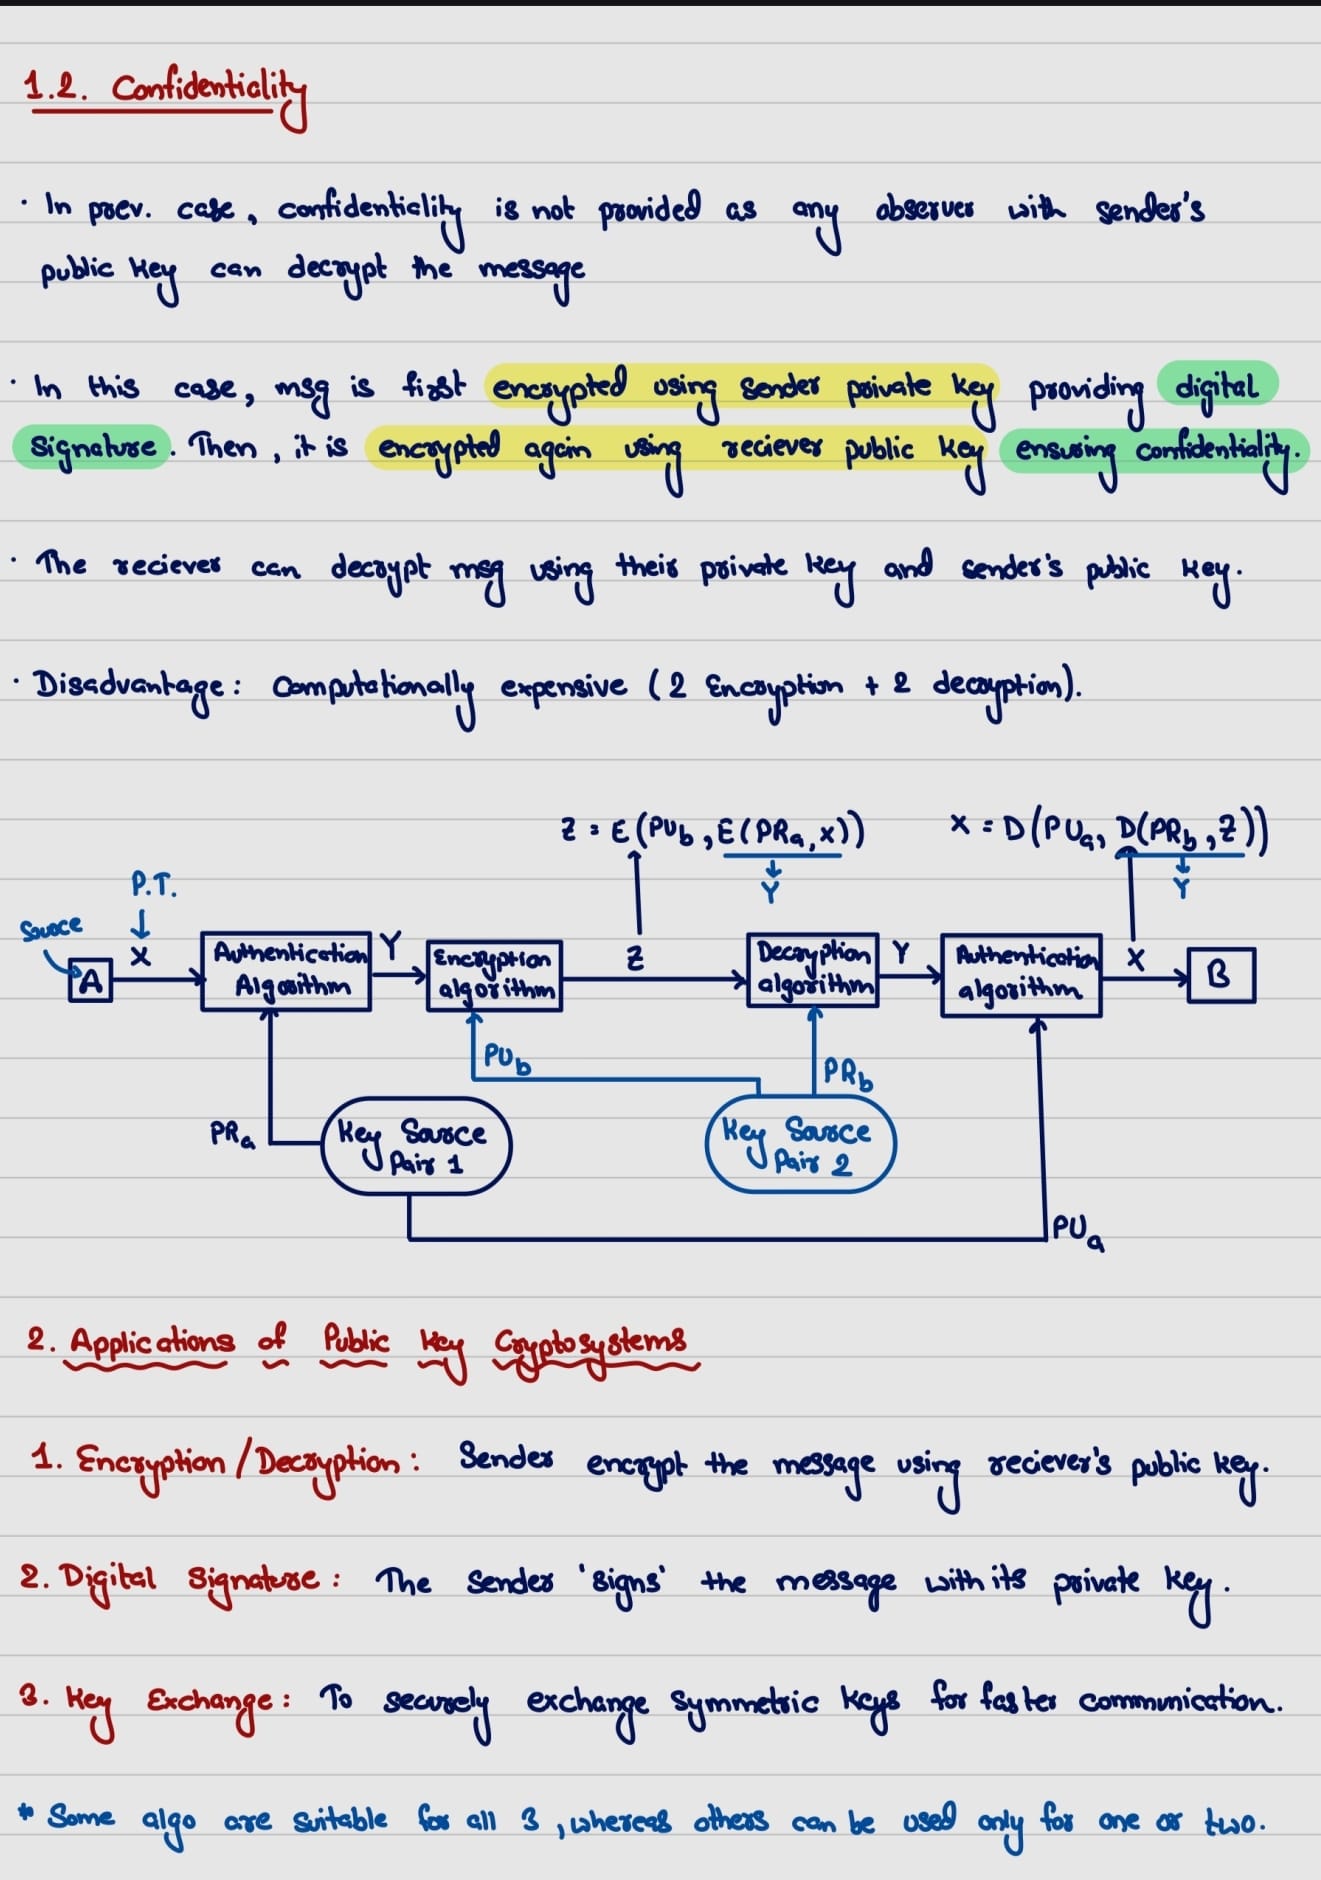 1.2. Confidentiality
· In prev. case, confidentiality is not provided as any observer with sender's
public key can decrypt the message
· In this case, msg is first encrypted using sender private key providing digital
signature. Then, it is encrypted again using reciever public key ensuring confidentiality.
· The reciever can decrypt msg using their private key and sender's public key.
· Disadvantage: Computationally expensive (2 Encryption + 2 decryption).
Z = E(PUb, E(PRa, x)) X = D(PUa, D(PRb, Z))
Y Y
P.T.
Source
A X Authentication Algorithm Y Encryption algorithm Z Decryption algorithm Y Authentication algorithm X B
PUb PRb
PRa Key Source Pair 1 Key Source Pair 2
PUa
2. Applications of Public Key Cryptosystems
1. Encryption/Decryption: Sender encrypt the message using reciever's public key.
2. Digital Signature: The sender 'signs' the message with its private key.
3. Key Exchange: To securely exchange symmetric keys for faster communication.
* Some algo are suitable for all 3, whereas others can be used only for one or two.